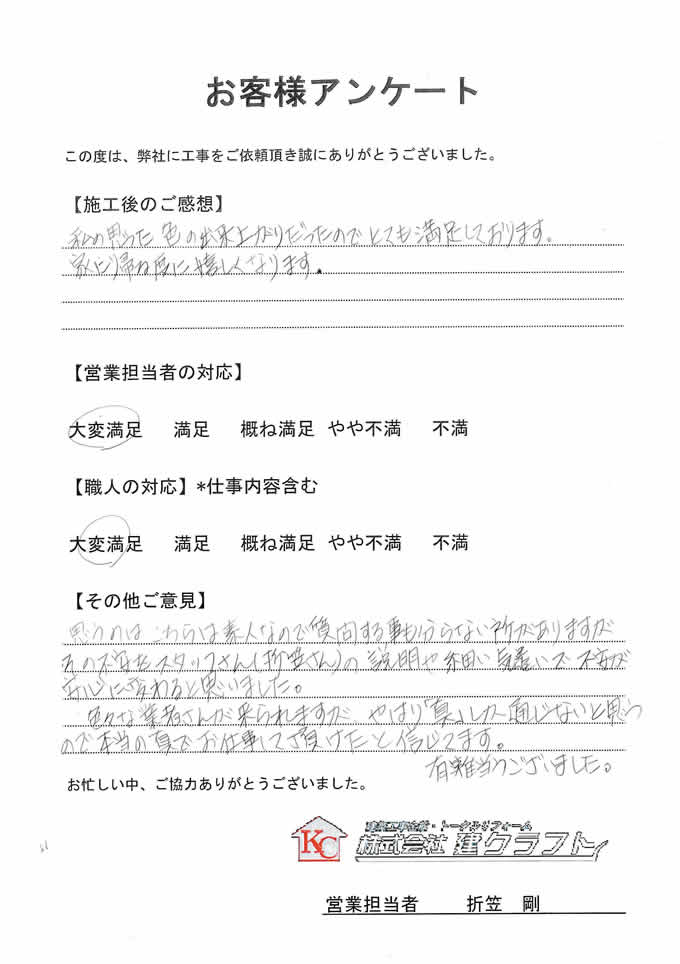 お客様アンケート
この度は、弊社に工事をご依頼頂き誠にありがとうございました。
【施工後のご感想】
私の思った色の出来上がりだったのでとても満足しております。
家に帰る度に嬉しくなります。
【営業担当者の対応】
大変満足 満足 概ね満足 やや不満 不満
【職人の対応】*仕事内容含む
大変満足 満足 概ね満足 やや不満 不満
【その他ご意見】
思うのはこちらは素人なので質問する事も分らない所がありますが
その不安をスタッフさん(折笠さん)の説明や細い気遣いで不安が
安心に変わると思いました。
色々な業者さんが来られますが、やはり「真」しか通じないと思う
ので本当の真でお仕事して頂けたと信じてます。
有難うございました。
お忙しい中、ご協力ありがとうございました。
KC
トータルリフォーム
株式会社 建クラフト
営業担当者 折笠 剛